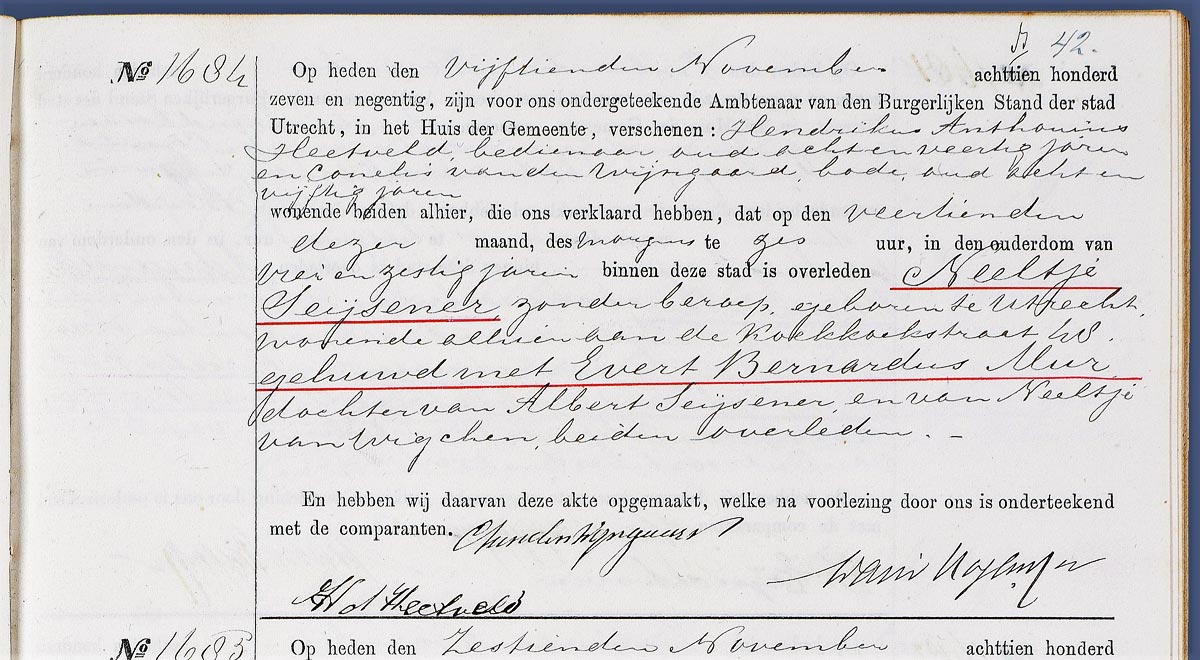 42.
No 1684 Op heden den Vijftienden November achttien honderd
zeven en negentig, zijn voor ons ondergeteekende Ambtenaar van den Burgerlijken Stand der stad
Utrecht, in het Huis der Gemeente, verschenen: Hendrikus Anthonius
Heetveld, bedienaar oud acht en veertig jaren
en Conelis van den Wijngaard bode, oud acht en
vijftig jaren
wonende beiden alhier, die ons verklaard hebben, dat op den veertienden
dezer maand, des morgens te zes uur, in den ouderdom van
vier en zestig jaren binnen deze stad is overleden Neeltje
Seijsener, zonder beroep, geboren te Utrecht,
wonende alhier aan de Koekkoekstraat 48.
gehuwd met Evert Bernardus Mur
dochter van Albert Seijsener, en van Neeltje
van Wigchen, beiden overleden. –
En hebben wij daarvan deze akte opgemaakt, welke na voorlezing door ons is onderteekend
met de comparanten. CvandenWijngaard
Heetveld
No 1685 Op heden den Zestienden November achttien honderd